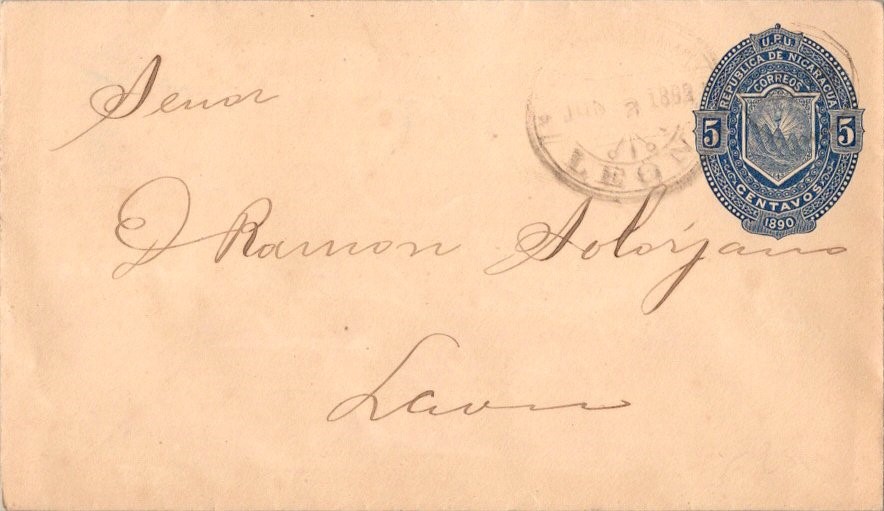 Señor
D Ramon Solorzano
Leon
U.P.U.
REPUBLICA DE NICARAGUA
CORREOS
5 5
CENTAVOS
1890
2 189
LEON